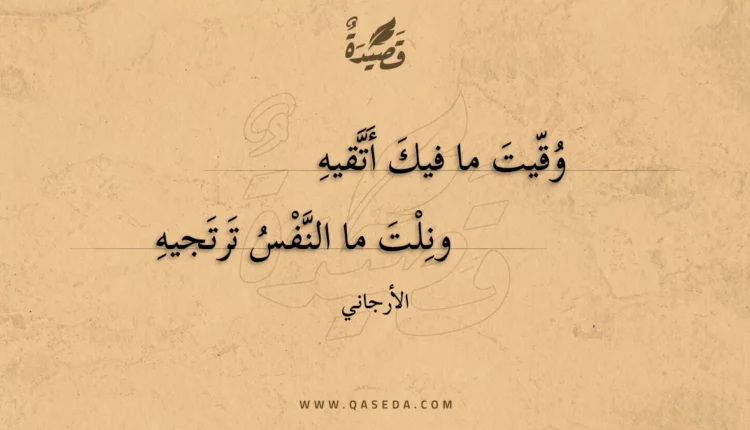 قَصِيدَةٌ
وُقّيتَ ما فيكَ أَتَّقيهِ
ونِلْتَ ما النَّفْسُ تَرتَجيهِ
الأرجاني
WWW.QASEDA.COM